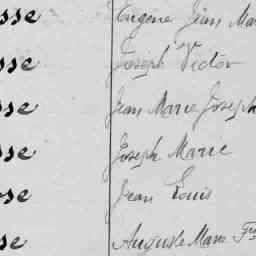 sse Eugène Jean Mar
sse Joseph Victor
sse Jean Marie Joseph
sse Joseph Marie
sse Jean Louis
se Auguste Marie Fr